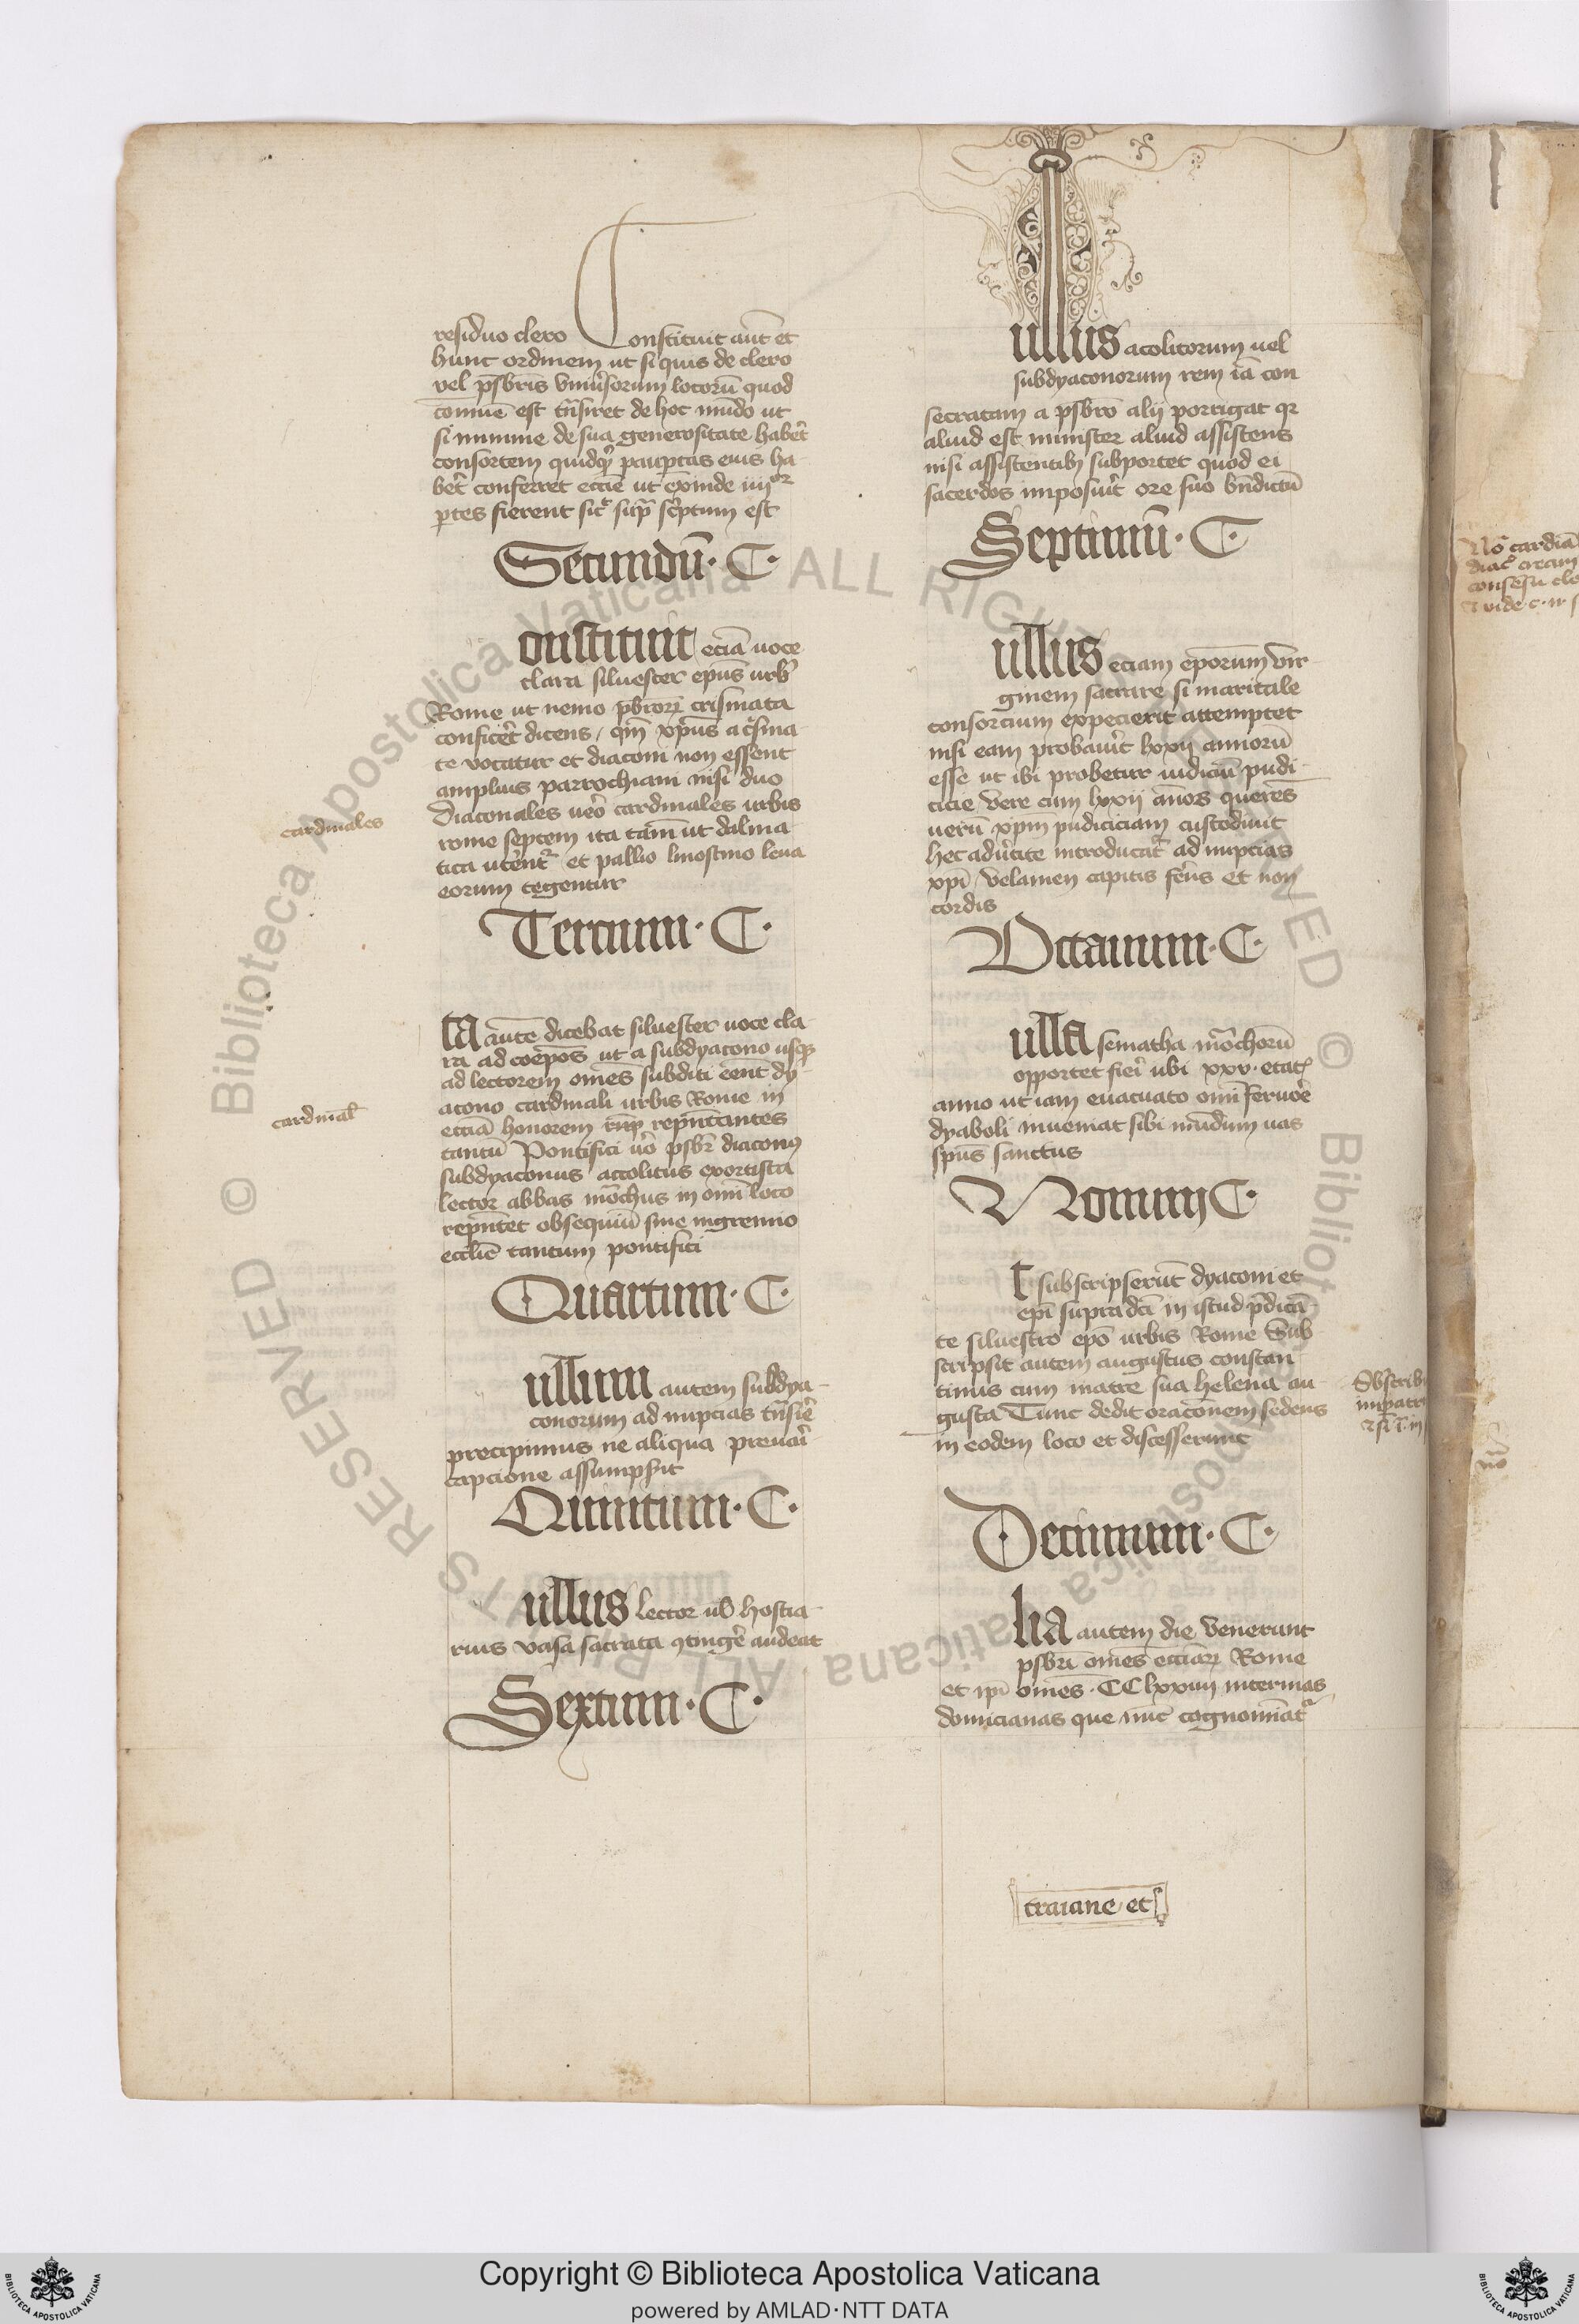 residuo clero Constituit aut̄ et
hunc ordinem ut si quis de clero
vel ps̄bris vniūsorum locorū quod
com̄ne est trāsiret de hoc mūdo ut
si minime de sua generositate habēt
consortem quidqͥ paup̄tas eius ha
bēt conferret ecc̄ie ut exinde iiijor
ꝑtes fierent sic̄ sup̄ sc̄ptum est
Secundū · C ·
onstituit eciā uoce
clara siluester ep̄us urb̄
Rome ut nemo pb̄rorꝝ crismata
conficēt dicens / qm̄ xp̄us a c̄sma
te vocatur et diaconi non essent
amplius parrochiani nisi duo
Diaconales ueō cardinales urbis
rome septem ita tam̄ ut dalma
tica utēnt᷑ et pallio linostino leua
eorum tegentur
cardinales
Tercium · C ·
ta autē dicebat siluester uoce cla
ra ad coep̄os ut a subdyacono usqꝫ
ad lectorem om̄es subditi eēnt dy
acono cardinali urbis Rome in
ecc̄iā honorem repn̄tantes
tantū Pontifici ūo psb̄r diaconꝰ
subdyaconus accolitus exorcista
lector abbas mōchus in om̄i loco
repn̄tet obsequiū siue in gremio
eccl̄ie tantum pontifici
cardinal̄
Quartum · C ·
ullum autem subdya
conorum ad nupcias trāsiē
precipimus ne aliqua preuaī
capcione assumpsit
Quintum · C ·
ullus lector ul̄ hostia
rius vasa sacrata ꝯtingē audeat
Sextum · C ·
ullus acolitorum uel
subdyaconorum rem iā con
secratam a psb̄ro alij porrigat qꝛ
aliud est minister aliud assistens
nisi assistentibꝫ subportet quod ei
sacerdos imposuīt ore suo bn̄dictū
Septimū · C
ullus eciam ep̄orum vir
ginem sacrare si maritale
consorcium expecierit attemptet
nisi eam probauīt lxxij annorū
esse ut ibi probetur iudiciū pudi
cicie vere cum lxxij annos querēs
uerū xp̄m pudiciciam custodiuit
hec adūtite introducat᷑ ad nupcias
xp̄i / velamen capitis fēns et non
cordis
Octauum · C ·
ulla sematha mōchorū
opportet fiei ubi xxv · etat̄
anno ut iam euacuato om̄i feruoē
dyaboli inueniat sibi mūdum uas
sp̄us sanctus
Nonum C ·
t subscripserūt dyaconi et
ep̄i supradc̄i in istud p̄dicā
te siluestro ep̄o urbis Rome Sub
scripsit autem augustus constan
tinus cum matre sua helena au
gusta Tunc dedit oracōnem sedens
in eodem loco et discesserunt
Decimum · C ·
lia autem die venerunt
psb̄ri om̄es ecc̄iarꝝ Rome
et ip̄i om̄es · CC lxxiiij intermas
domicianas que nūc cognomīat᷑
traiane et
Nō cardiā
Copyright © Biblioteca Apostolica Vaticana
powered by AMLAD·NTT DATA
BIBLIOTECA APOSTOLICA VATICANA
BIBLIOTECA APOSTOLICA VATICANA
© Biblioteca Apostolica Vaticana ALL RIGHTS RESERVED
© Biblioteca Apostolica Vaticana ALL RIGHTS RESERVED